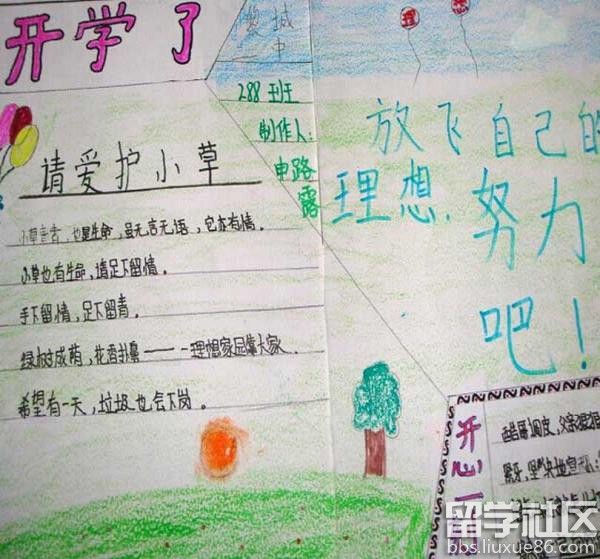 开学了
城
中
288班
制作人:
申路
露
理
想
放飞自己的
理想.努力
吧!
请爱护小草
也是生命,虽无言无语,它亦有情。
小草也有生命,请足下留情。
手下留情,足下留青。
绿树成荫,花香扑鼻——理想家园靠大家.
希望有一天,垃圾也会下岗。
开心一
酷屠调皮,父亲
留学社区
bbs.liuxue86.com